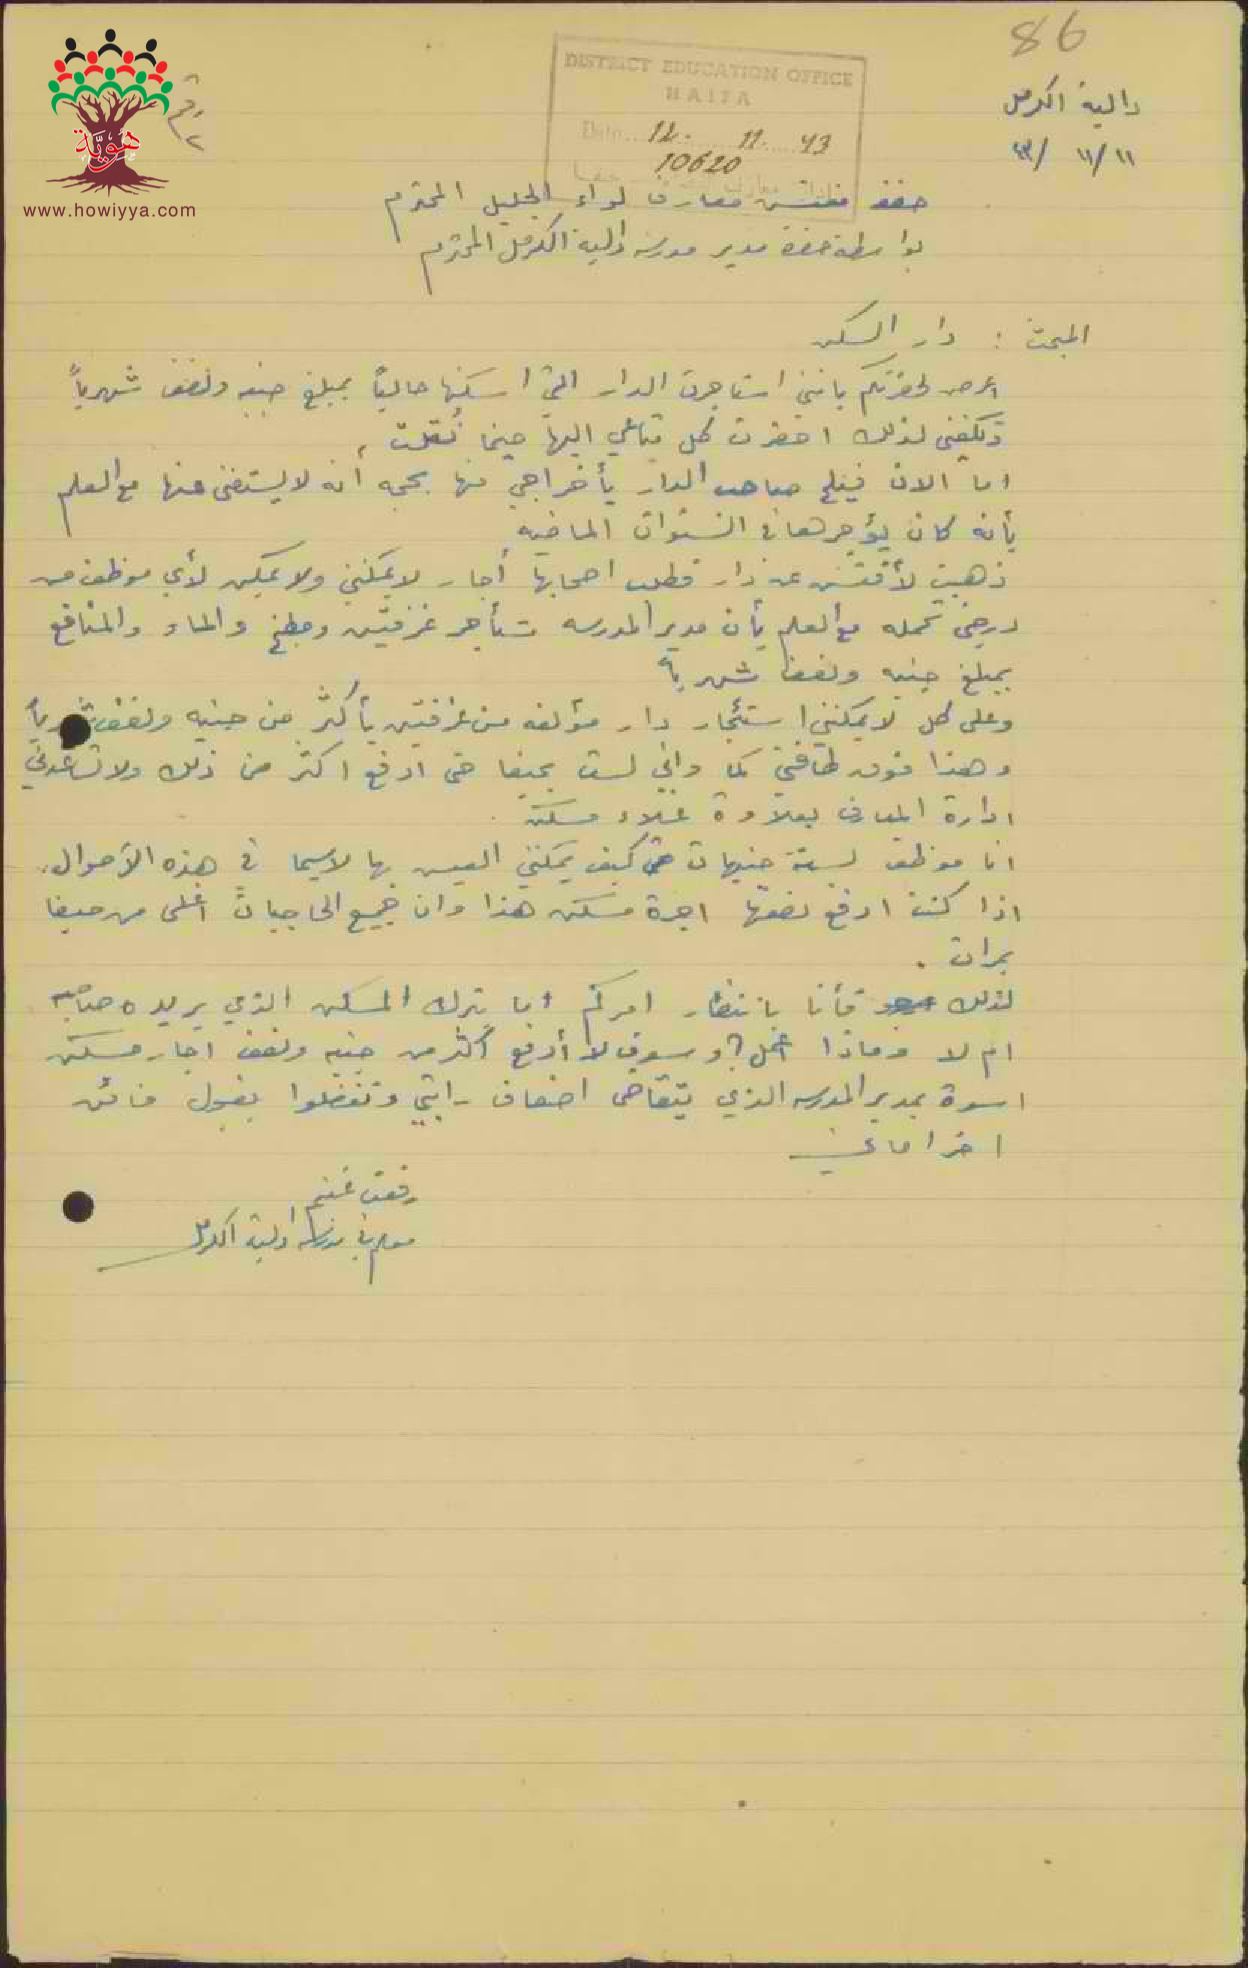 86
دالية الكرمل
١١/ ١١/ ٤٣
DISTRICT EDUCATION OFFICE
HAIFA
Date... 12. ... 11. ... 43
10620
هوية
www.howiyya.com
حضرة مفتش معارف لواء الجليل المحترم
بواسطة حضرة مدير مدرسة دالية الكرمل المحترم
المبحث : دار السكن
اعرض لحضرتكم بانني استاجرت الدار التي اسكنها حالياً بمبلغ جنيه ونصف شهرياً
لذلك احضرت كل اليها حينما نُقلت ،
اما الان صاحب الدار بأخراجي منها بحجه أنه لا يستغني عنها مع العلم
بأنه كان يؤجرها في السنوات الماضيه
ذهبت لأفتش عن دار فطلب اصحابها أجار لا يمكنني ولا يمكن لأي موظف من
درجتي تحمله مع العلم بأن مدير المدرسه يستأجر غرفتين ومطبخ والماء والمنافع
بمبلغ جنيه ونصف شهرياً
وعلى كل لا يمكنني استئجار دار مؤلفه من غرفتين بأكثر من جنيه ونصف شهرياً
وهذا فوق طاقتي كما واني لست بحيفا حتى ادفع اكثر من ذلك ولا تساعدني
ادارة المعارف بعلاوة غلاء مسكن .
انا موظف بستة جنيهات كيف يمكنني العيش بها لاسيما في هذه الأحوال.
اذا كنت ادفع نصفها اجرة مسكن هذا وان جميع الحاجيات أغلى من حيفا
بمرات .
لذلك فأنا بانتظار امركم اما بترك المسكن الذي يريده صاحبه
ام لا وماذا اعمل؟ وسوف لا أدفع أكثر من جنيه ونصف اجار مسكن
اسوة بمدير المدرسه الذي يتقاضى اضعاف راتبي وتفضلوا بقبول فائق
احتراماتي
رفعت غنيم
معلم في مدرسة دالية الكرمل